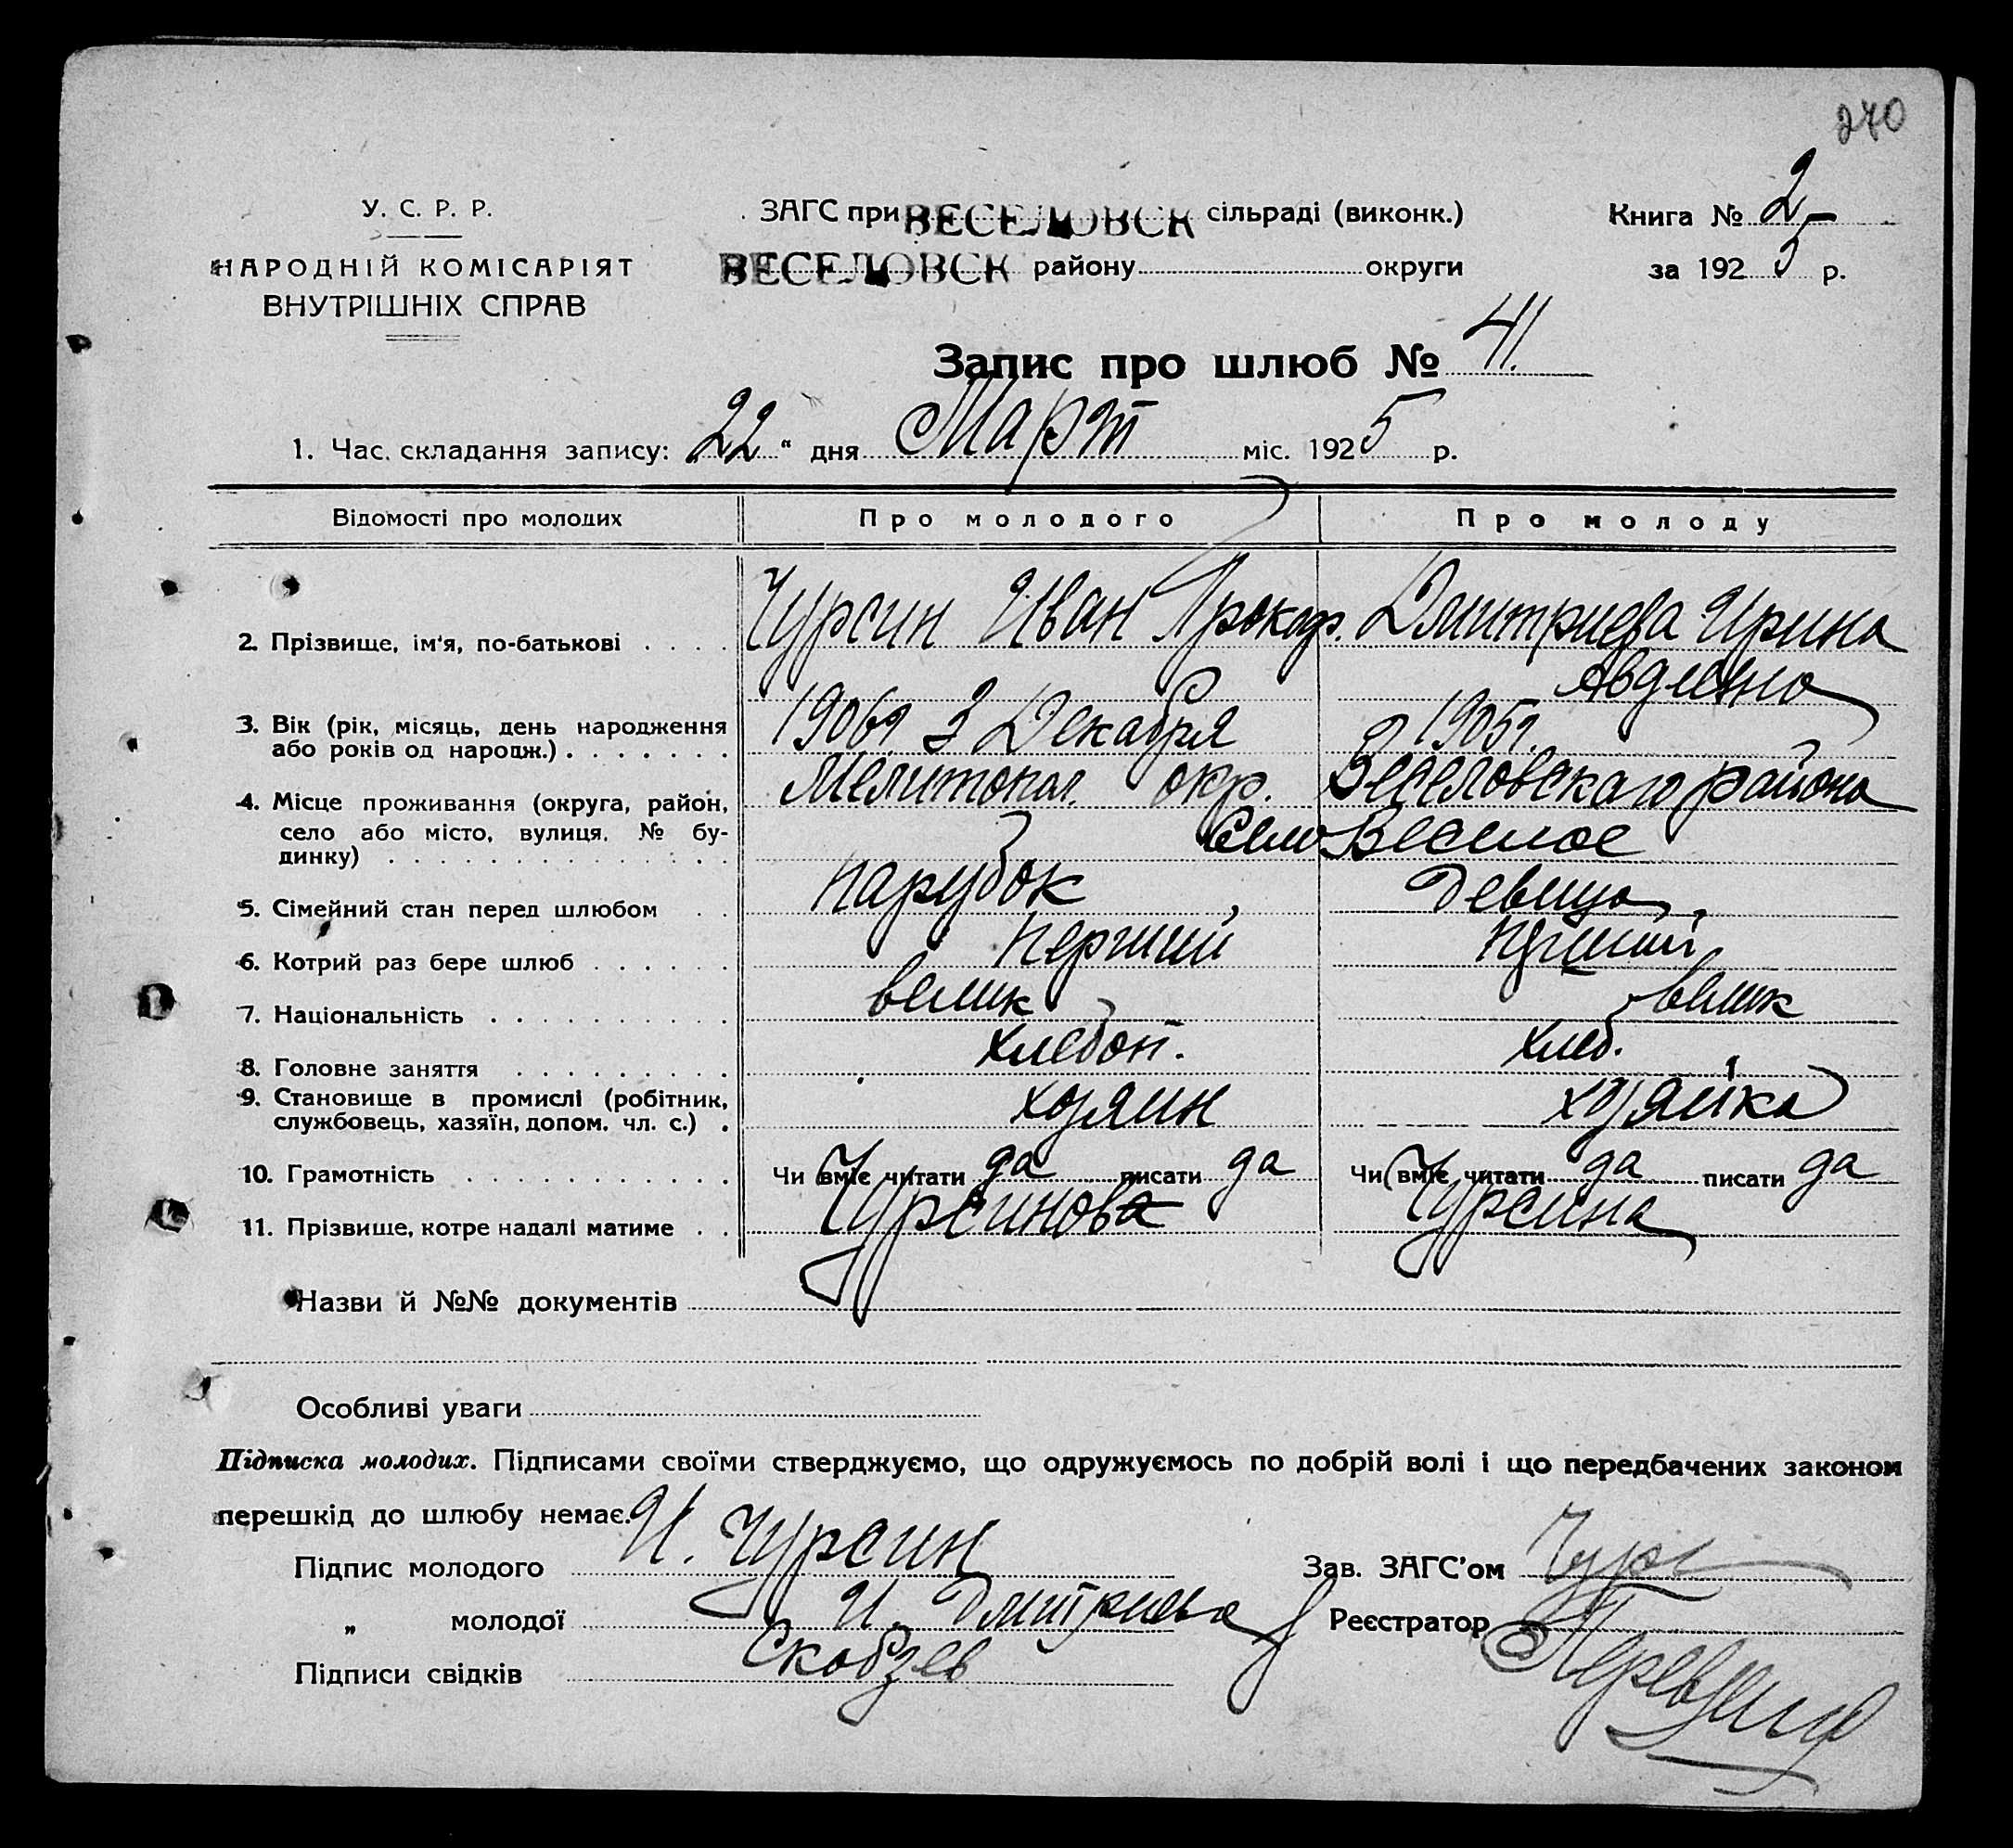 240
У. С. Р. Р.
НАРОДНІЙ КОМІСАРІЯТ
ВНУТРІШНІХ СПРАВ
ЗАГС при ВЕСЕЛОВСК сільраді (виконк.)
ВЕСЕЛОВСК району округи
Книга № 2
за 1925 р.
Запис про шлюб № 41.
1. Час складання запису: 22 " дня Март міс. 1925 р.
Відомості про молодих Про молодого Про молоду
2. Прізвище, ім'я, по-батькові Чурсин Иван Прокоф. Дмитриева Ирина
Авдеевна
3. Вік (рік, місяць, день народження
або років од народж.) 1906 г. 3 Декабря 1905 г.
4. Місце проживання (округа, район, Мелитопол. окр. Веселовскаго района
село або місто, вулиця, № бу- Село Веселое
динку)
5. Сімейний стан перед шлюбом парубок, девица,
6. Котрий раз бере шлюб перший перший
7. Національність велик велик
8. Головне заняття хлебоп. хлеб.
9. Становище в промислі (робітник,
службовець, хазяїн, допом. чл. с.) хозяин хозяйка
10. Грамотність Чи вміє читати да писати да Чи вміє читати да писати да
11. Прізвище, котре надалі матиме Чурсинова Чурсина
Назви й №№ документів
Особливі уваги
Підписка молодих. Підписами своїми стверджуємо, що одружуємось по добрій волі і що передбачених законом
перешкід до шлюбу немає.
Підпис молодого И. Чурсин
Зав. ЗАГС'ом
" молодої И. Дмитриева
Реєстратор
Підписи свідків Скобзев